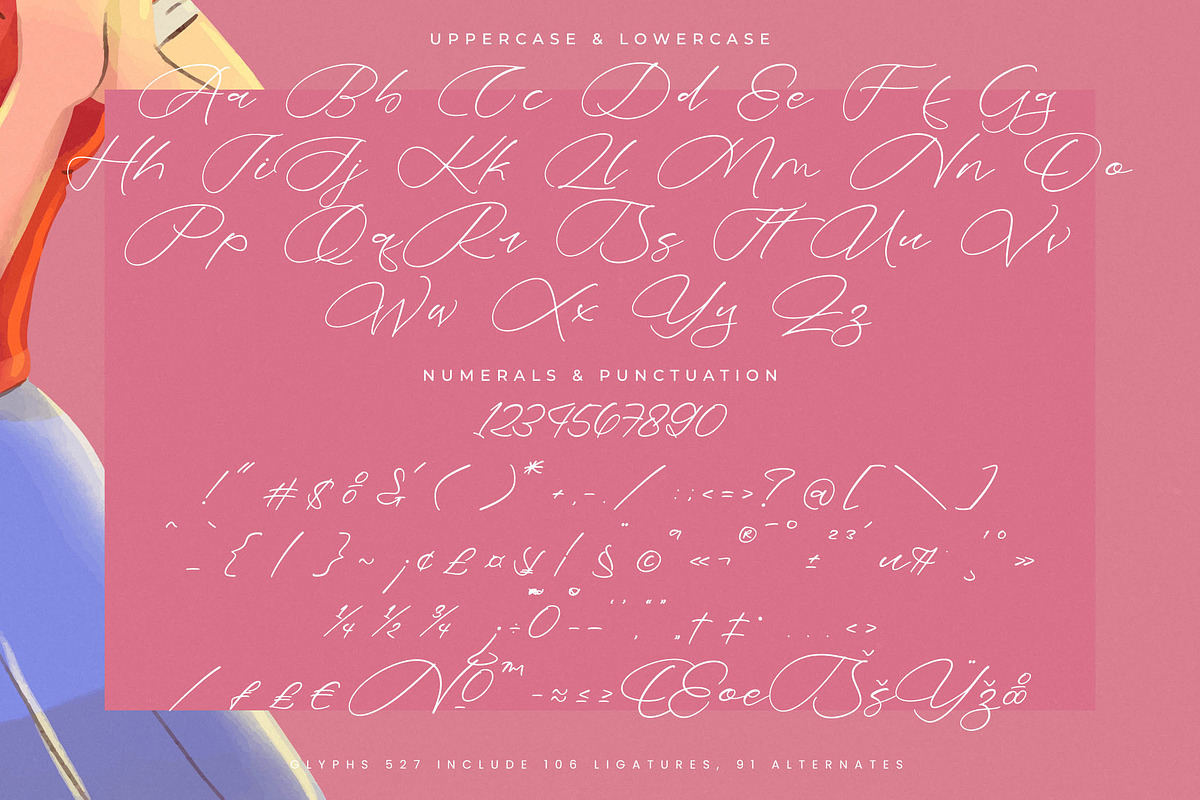 UPPERCASE & LOWERCASE
Aa Bb Cc Dd Ee Ff Gg
Hh Ii Jj Kk Ll Mm Nn Oo
Pp Qq Rr Ss Tt Uu Vv
Ww Xx Yy Zz
NUMERALS & PUNCTUATION
1234567890
! " # $ & ' ( ) * + , - . / : ; < = > ? @ [ \ ]
^ _ ` { | } ~ ¡ ¢ £ ¤ ¥ ¦ § ¨ © ª « ¬ ® ¯ ° ± ² ³ ´ µ ¶ · ¸ ¹ º »
¼ ½ ¾ ¿ ÷ – — ‘ ’ ‚ “ ” „ † ‡ • . . . ‹ ›
⁄ ₤ € № ™ − ≈ ≤ ≥ Œ œ Š š Ÿ ž
GLYPHS 527 INCLUDE 106 LIGATURES, 91 ALTERNATES